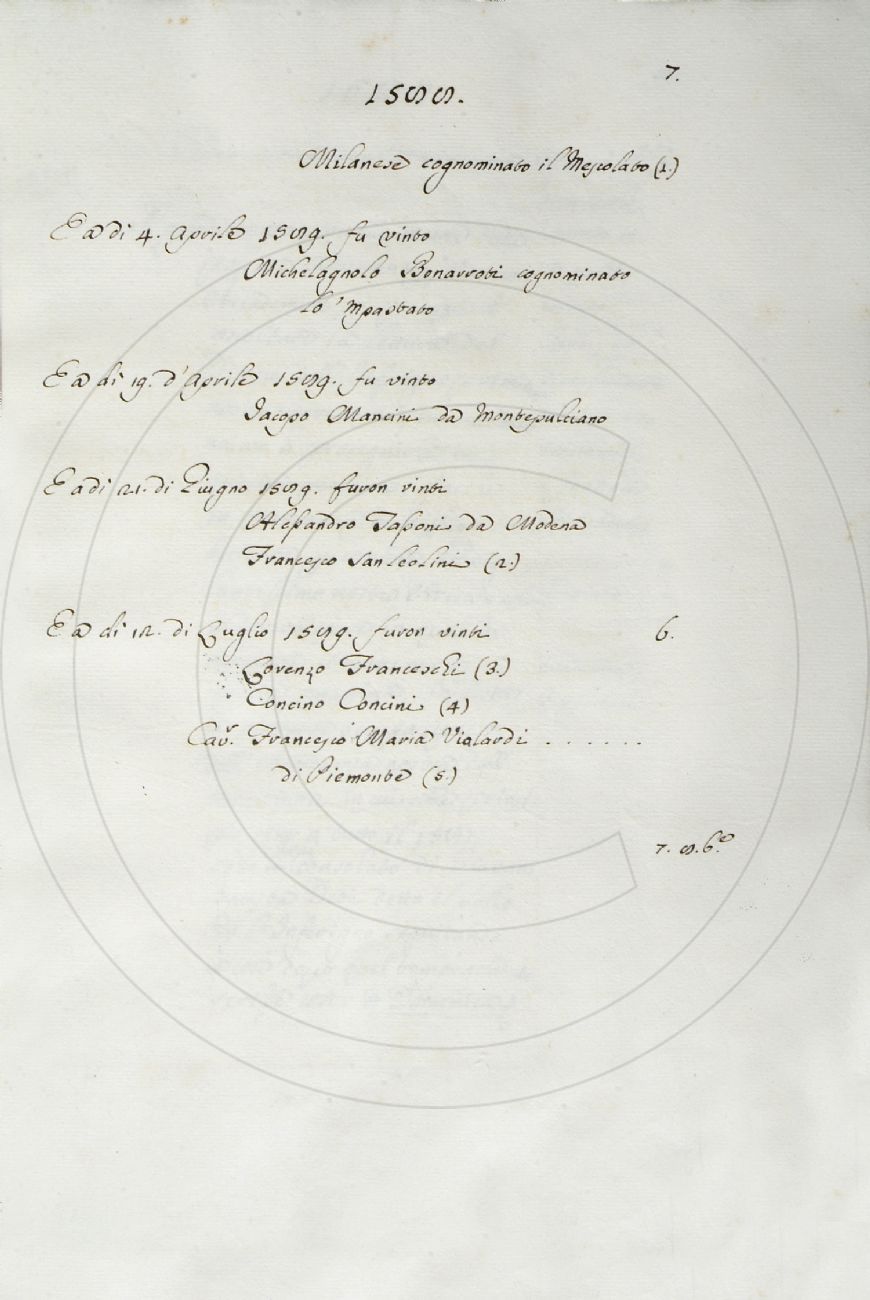 7.
1588.
Milanese cognominato il Mescolato (1.)
E a di 4. Aprile 1589. fu vinto
Michelagnolo Bonarroti cognominato
lo 'mpastato
E a di 19. d'Aprile 1589. fu vinto
Jacopo Mancini da Montepulciano
E a di 21. di Giugno 1589. furon vinti
Alessandro Tassoni da Modena
Francesco Sanleolini (2.)
E a di 12. di Luglio 1589. furon vinti 6.
Lorenzo Franceschi (3.)
Concino Concini (4)
Cav. Francesco Maria Vialardi . . . . . .
di Piemonte (5.)
7. 8. 6.e